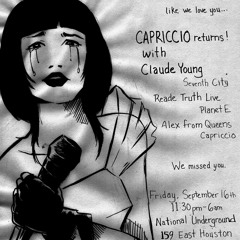 like we love you...
CAPRICCIO returns!
with
Claude Young
Seventh City
Reade Truth Live
Planet E
Alex From Queens
Capriccio
We missed you.
Friday, September 16th
11:30pm-6am
National Underground
159 East Houston